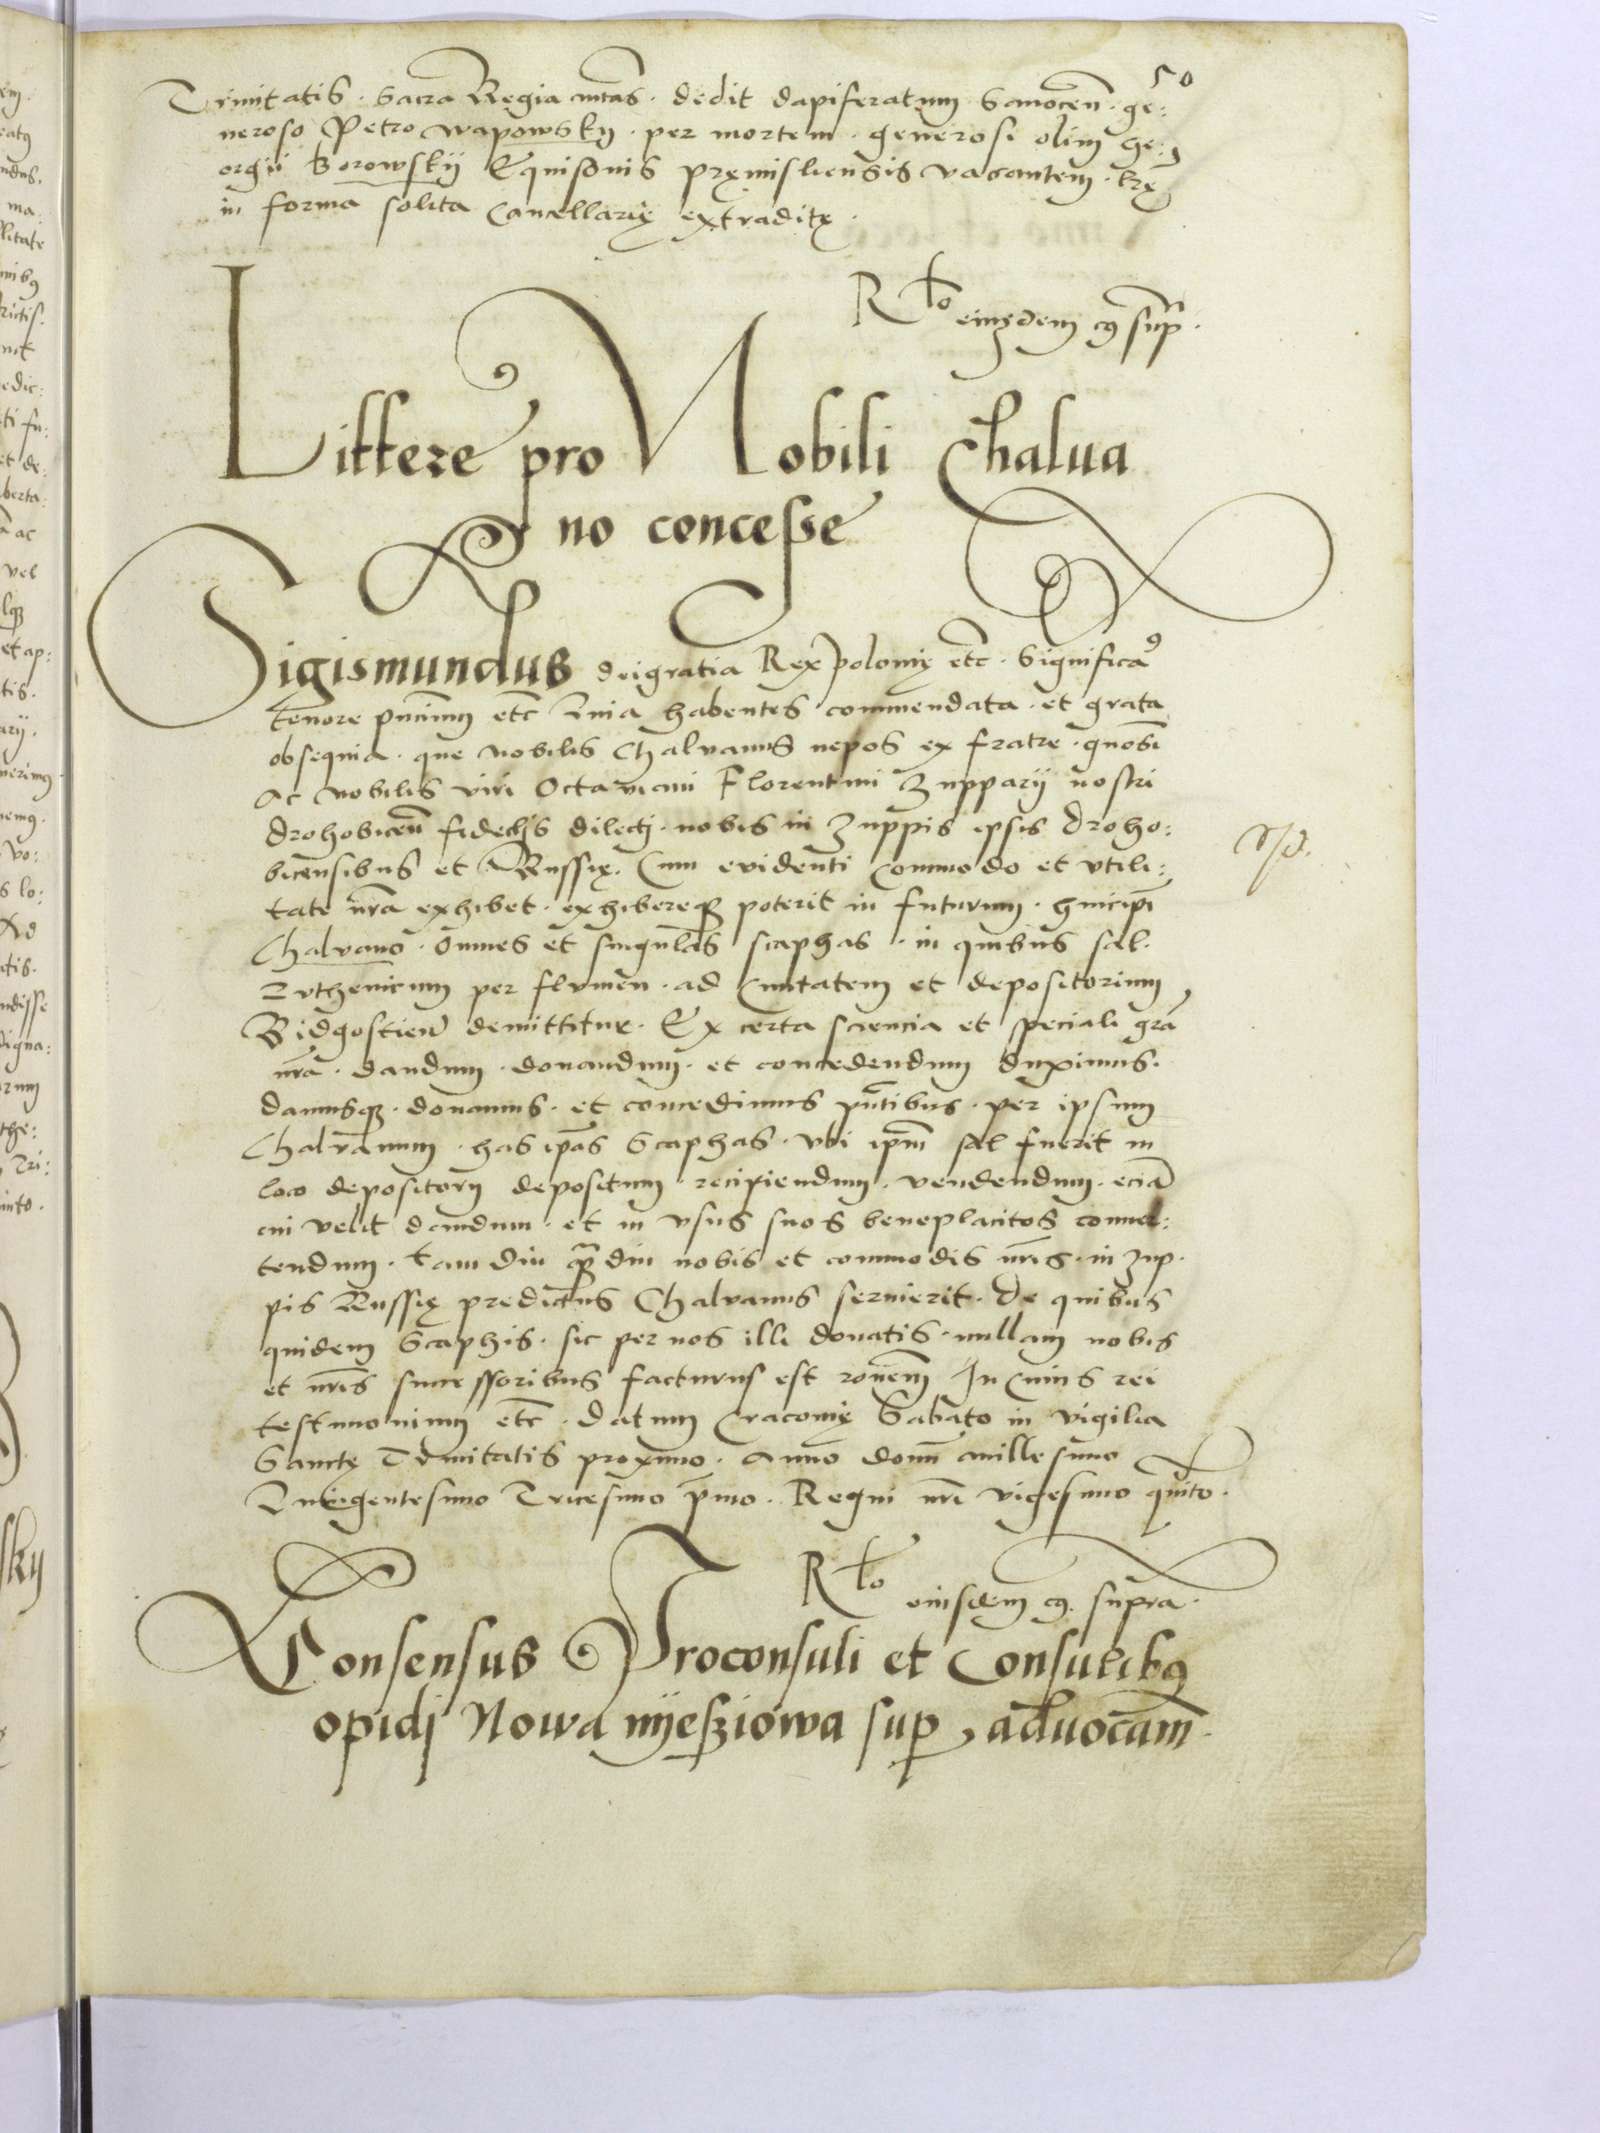 50
Trinitatis · Sacra Regia mtas · dedit dapiferatum Sanocen · ge:
neroso Petro wapowskÿ · per mortem · generosi olim Ge:
orgii Borowskÿ Equisonis pręmisliensis vacantem · lrę
in forma solita Cancellarię extraditę ·
Rlo eiusdem cuius supra ·
Littere pro Nobili Chalua
no concesse
Sigismundus dei gratia Rex polonię etc · Significamus
tenore pntium etc Quia habentes commendata · et grata
obsequia · que nobilis Chalvanus nepos ex fratre · gnosi
Ac nobilis viri Octaviani Florentini Zupparii nostri
drohobicen fidelis dilecti · nobis in Zuppis ipsis droho:
bicensibus et Russię. Cum evidenti Commodo et vtili:
tate nra exhibet · exhibereque poterit in futurum · huic ipi
Chalvano · omnes et singulas scaphas · in quibus sal ·
rvthenicum per flvmen · ad Civitatem et depositorium
Bidgostien demittitur · Ex certa sciencia et speciali gra
nra · dandum · donandum · et concedendum duximus ·
damusque · donamus · et concedimus pntibus · per ipsum
Chalvanum · has ipas Scaphas · vbi ipm sal fuerit in
loco depositorii depositum · recipiendum · vendendum · ecia
cui velit dandum · et in vsus suos beneplacitos conuer:
tendum · tam diu quam diu nobis et commodis nris · in Zup ·
pis Russię predictus Chalvanus servierit · de quibus
quidem Scaphis · sic per nos illi donatis · nullam nobis
et nris successoribus facturus est ronem In Cuius rei
testimonium etc · datum Cracovię Sabato in vigilia
Sanctę Trinitatis proximo · Anno domi millesimo
Quingentesimo Tricesimo primo · Regni nri vigesimo quinto ·
Rlo eiusdem cuius supra ·
Consensus Proconsuli et Consulibus
opidi Nowa mÿesziowa super aduocatiam ·